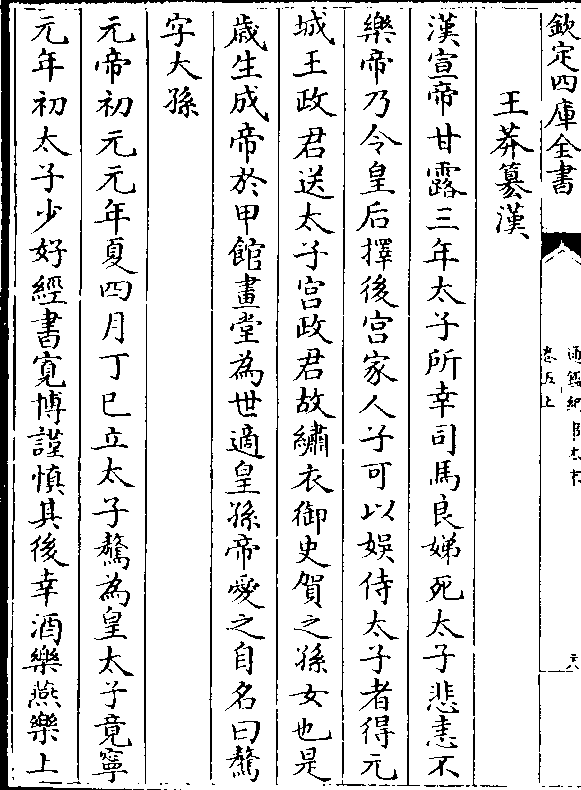 欽定四庫全書
卷五上
王莽篡漢
漢宣帝甘露三年太子所幸司馬良娣死太子悲恚不
樂帝乃令皇后擇後宫家人子可以娯侍太子者得元
城王政君送太子宫政君故繡衣御史賀之孫女也是
歳生成帝於甲館畫堂為世適皇孫帝愛之自名曰驁
字大孫
元帝初元元年夏四月丁巳立太子驁為皇太子竟寧
元年初太子少好經書寛博謹慎其後幸酒樂燕樂上